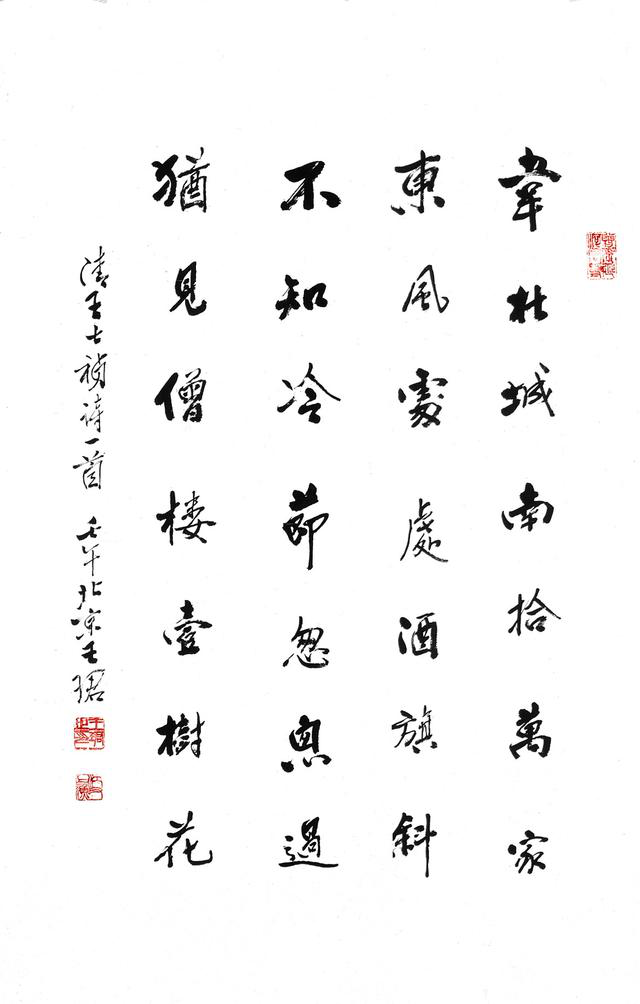 韋杜城南拾萬家
東風處處酒旗斜
不知冷節怱怱過
猶見僧楼壹樹花
清王士禎詩一首 壬午北京王珺